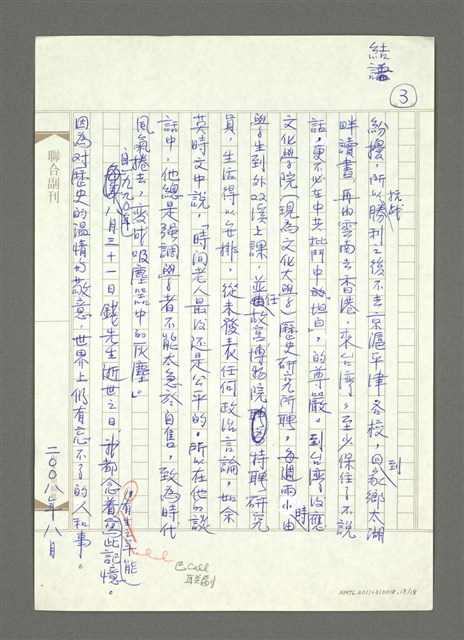 結語
3
紛擾，所以抗戰勝利之後不去京滬平津各校，回到家鄉太湖
畔讀書，再由雲南去香港，來台灣。至少保住了不說
話，更不必在中共批鬥中「坦白」的尊嚴。到台灣後應
文化學院（現為文化大學）歷史研究所聘，每週兩小時由
學生到外双溪上課，並任故宮博物院特聘研究
員，生活得以安排，從未發表任何政治言論，如余
英時文中說，「時間老人最後還是公平的，所以在他的談
話中，他總是强調學者不能太急於自售，致為時代
風氣捲去，變成吸塵器中的灰塵。」
自一九九○年八月三十一日錢先生逝世之日，我都念着，有生之年能寫此記憶。
因為对歷史的溫情与敬意，世界上仍有忘不了的人和事。
二○○八年八月
聯合副刊
已call
聯副
NMTL20110310018,18/18